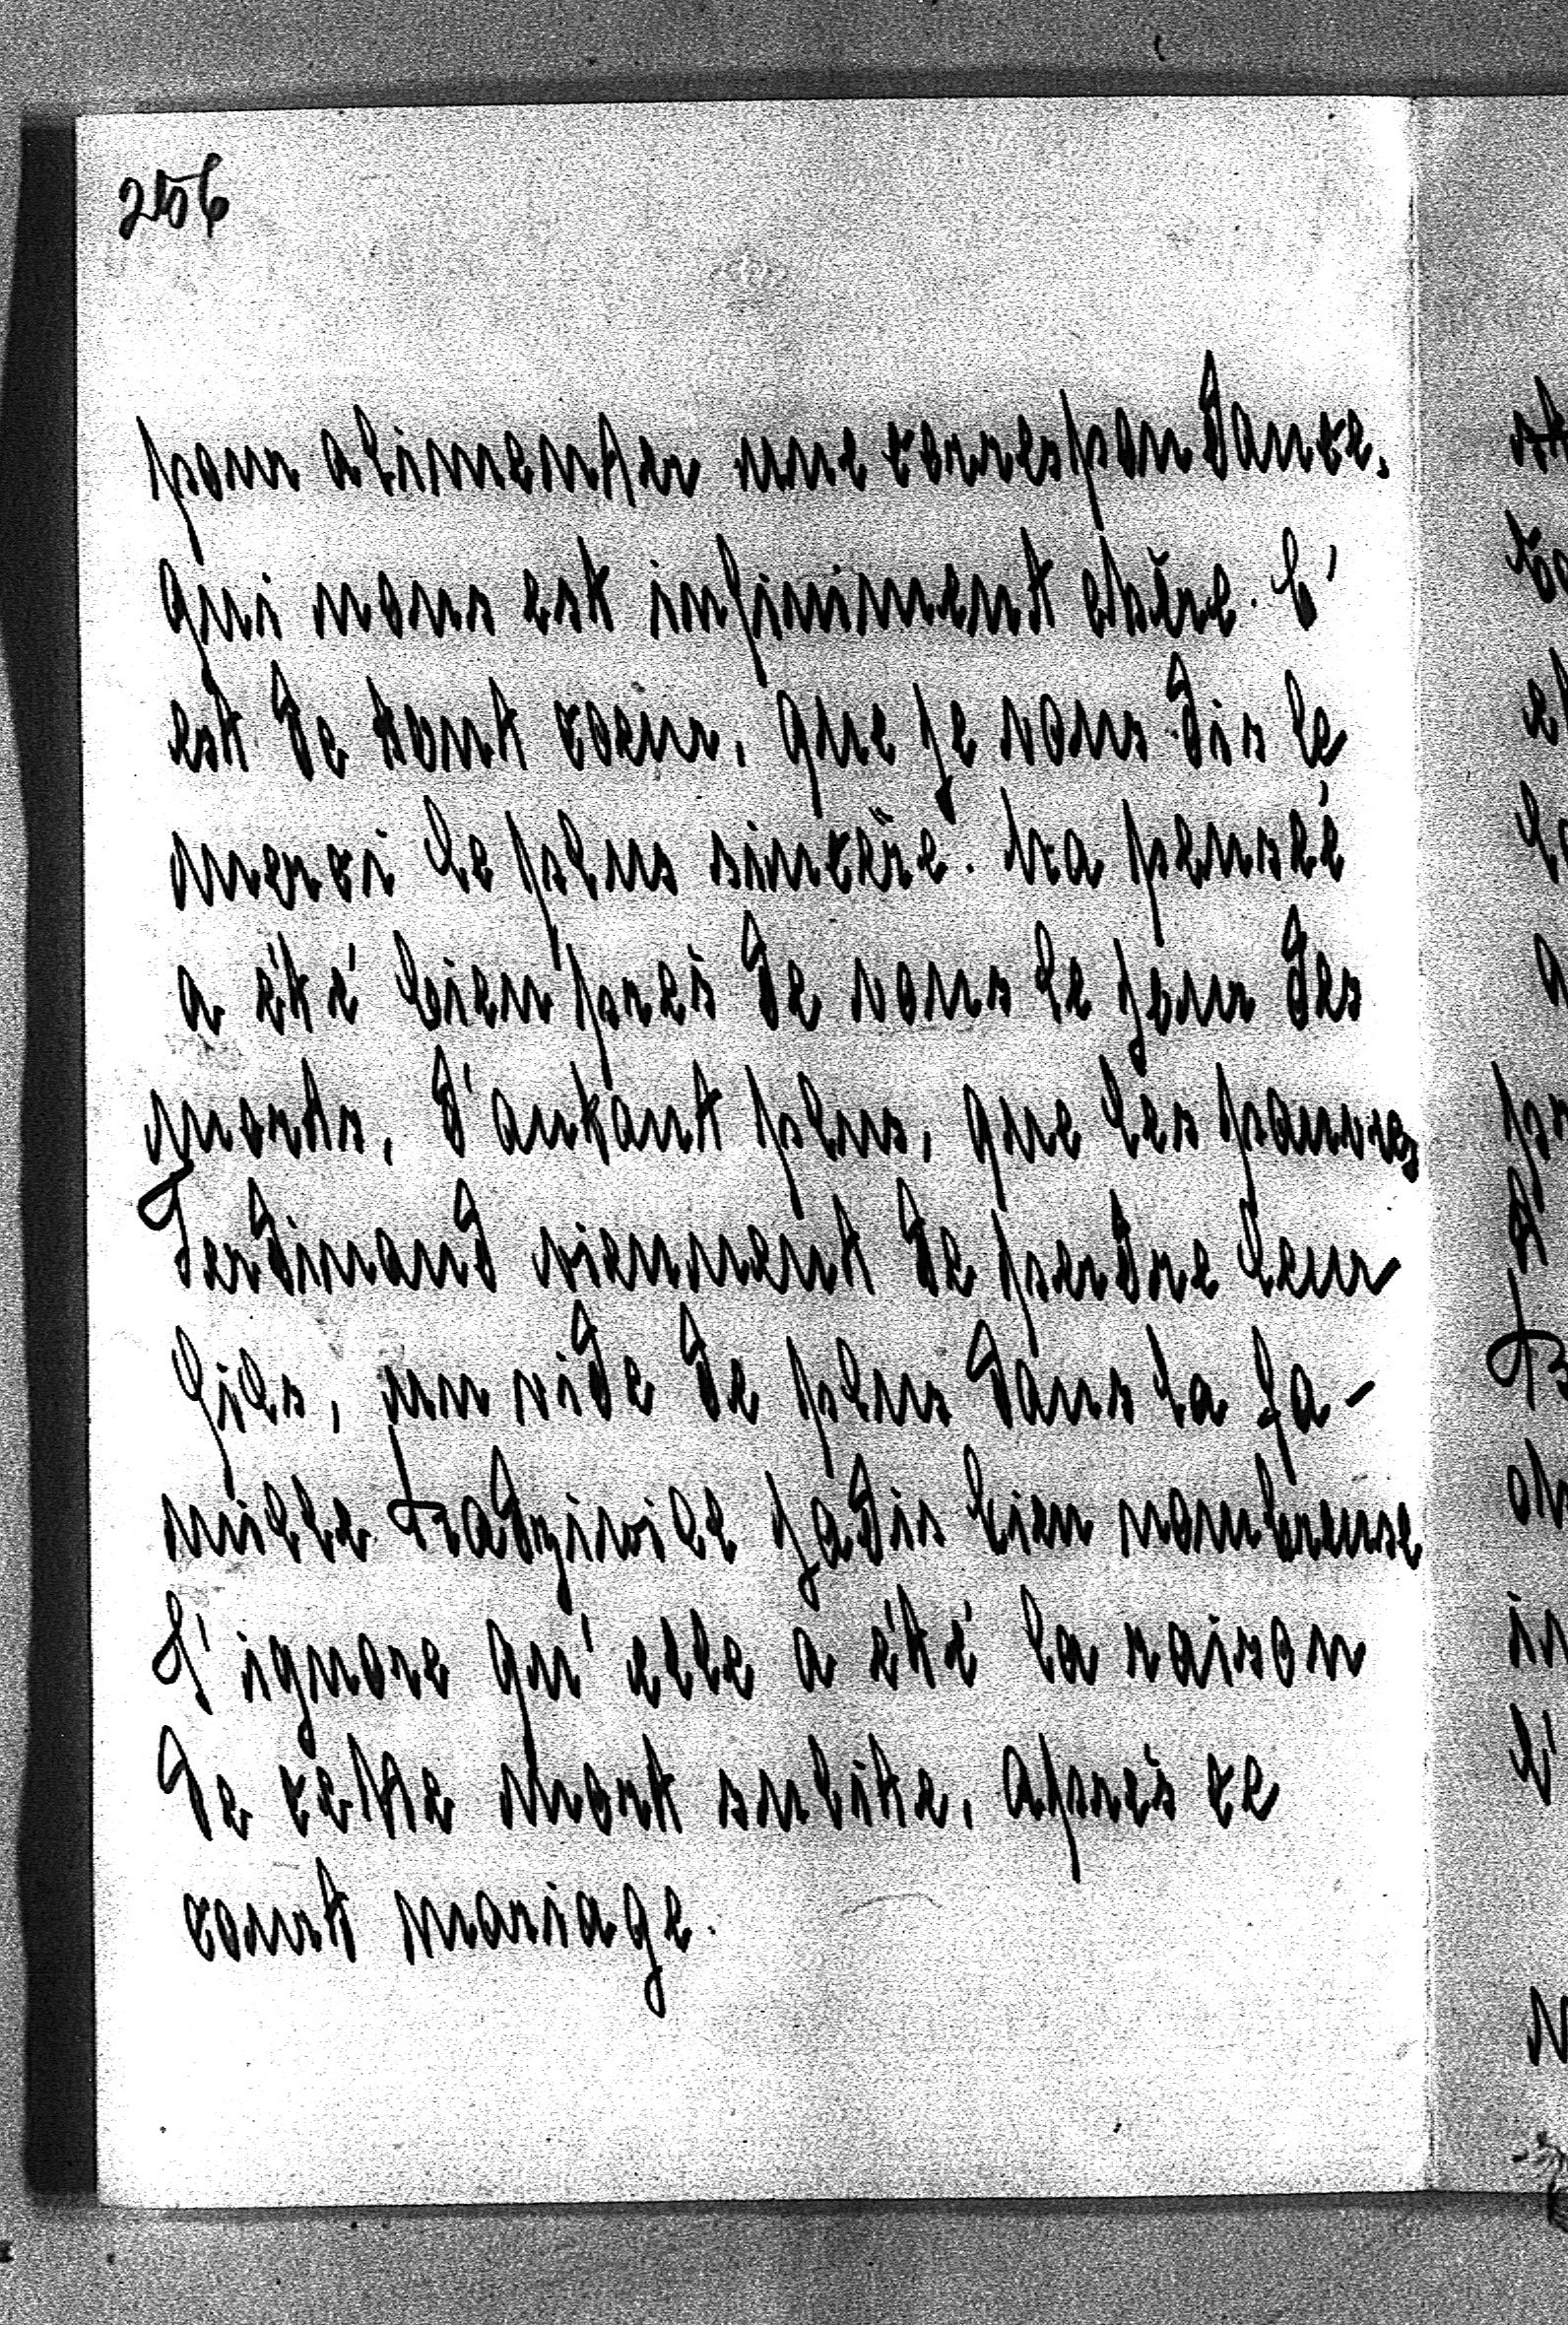 256
pour alimenter une correspondance,
qui nous est infiniment chère. C'
est de tout coeur, que je vous dis le
merci le plus sincère. Ma pensée
a été bien près de vous le jour des
morts, d'autant plus, que les pauvres
Ferdinand viennent de perdre leur
fils, un vide de plus dans la fa-
mille Radziwill jadis bien nombreuse
J'ignore qu'elle a été la raison
de cette mort subite, après ce
court mariage.